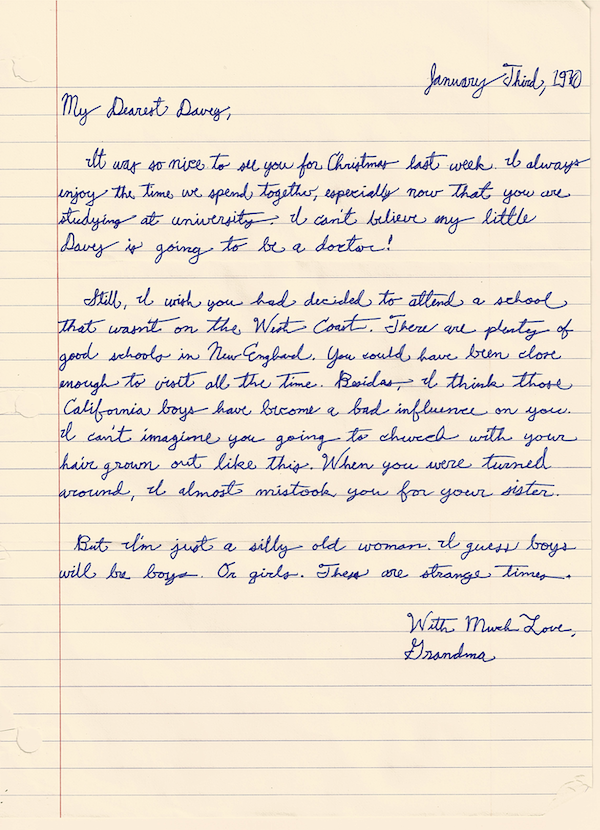 January Third, 1970
My Dearest Davey,
It was so nice to see you for Christmas last week. I always
enjoy the time we spend together, especially now that you are
studying at university. I can't believe my little
Davey is going to be a doctor!
Still, I wish you had decided to attend a school
that wasn't on the West Coast. There are plenty of
good schools in New England. You could have been close
enough to visit all the time. Besides, I think those
California boys have become a bad influence on you.
I can't imagine you going to church with your
hair grown out like this. When you were turned
around, I almost mistook you for your sister.
But I'm just a silly old woman. I guess boys
will be boys. Or girls. These are strange times.
With Much Love,
Grandma